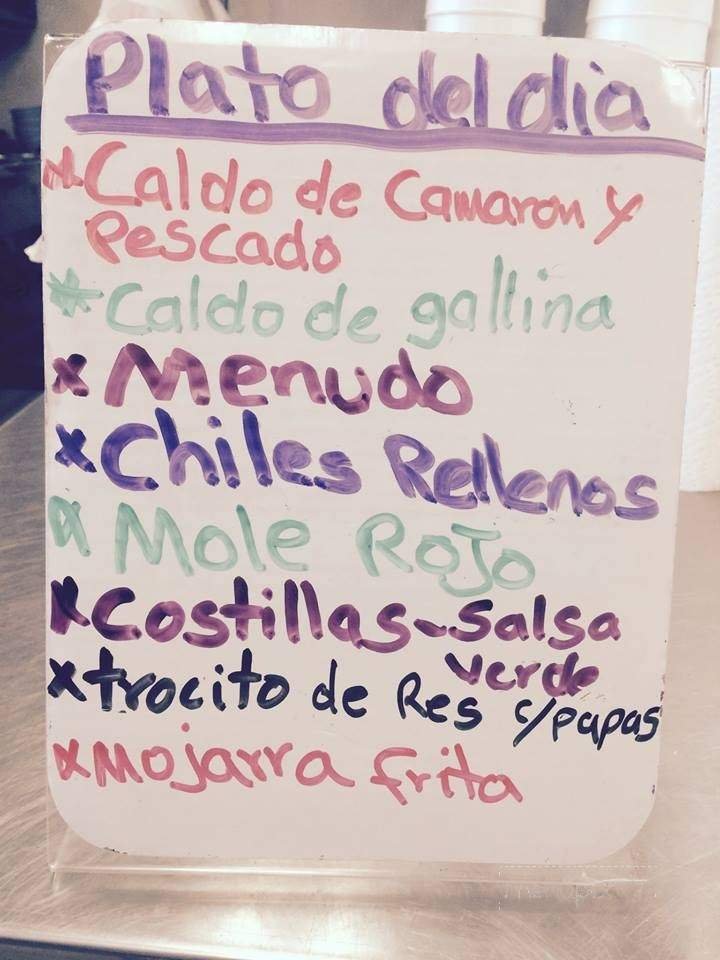 Plato del dia
*Caldo de Camaron y
Pescado
*Caldo de gallina
x Menudo
x Chiles Rellenos
x Mole Rojo
x Costillas-Salsa
verde
x trocito de Res c/papas
x Mojarra frita